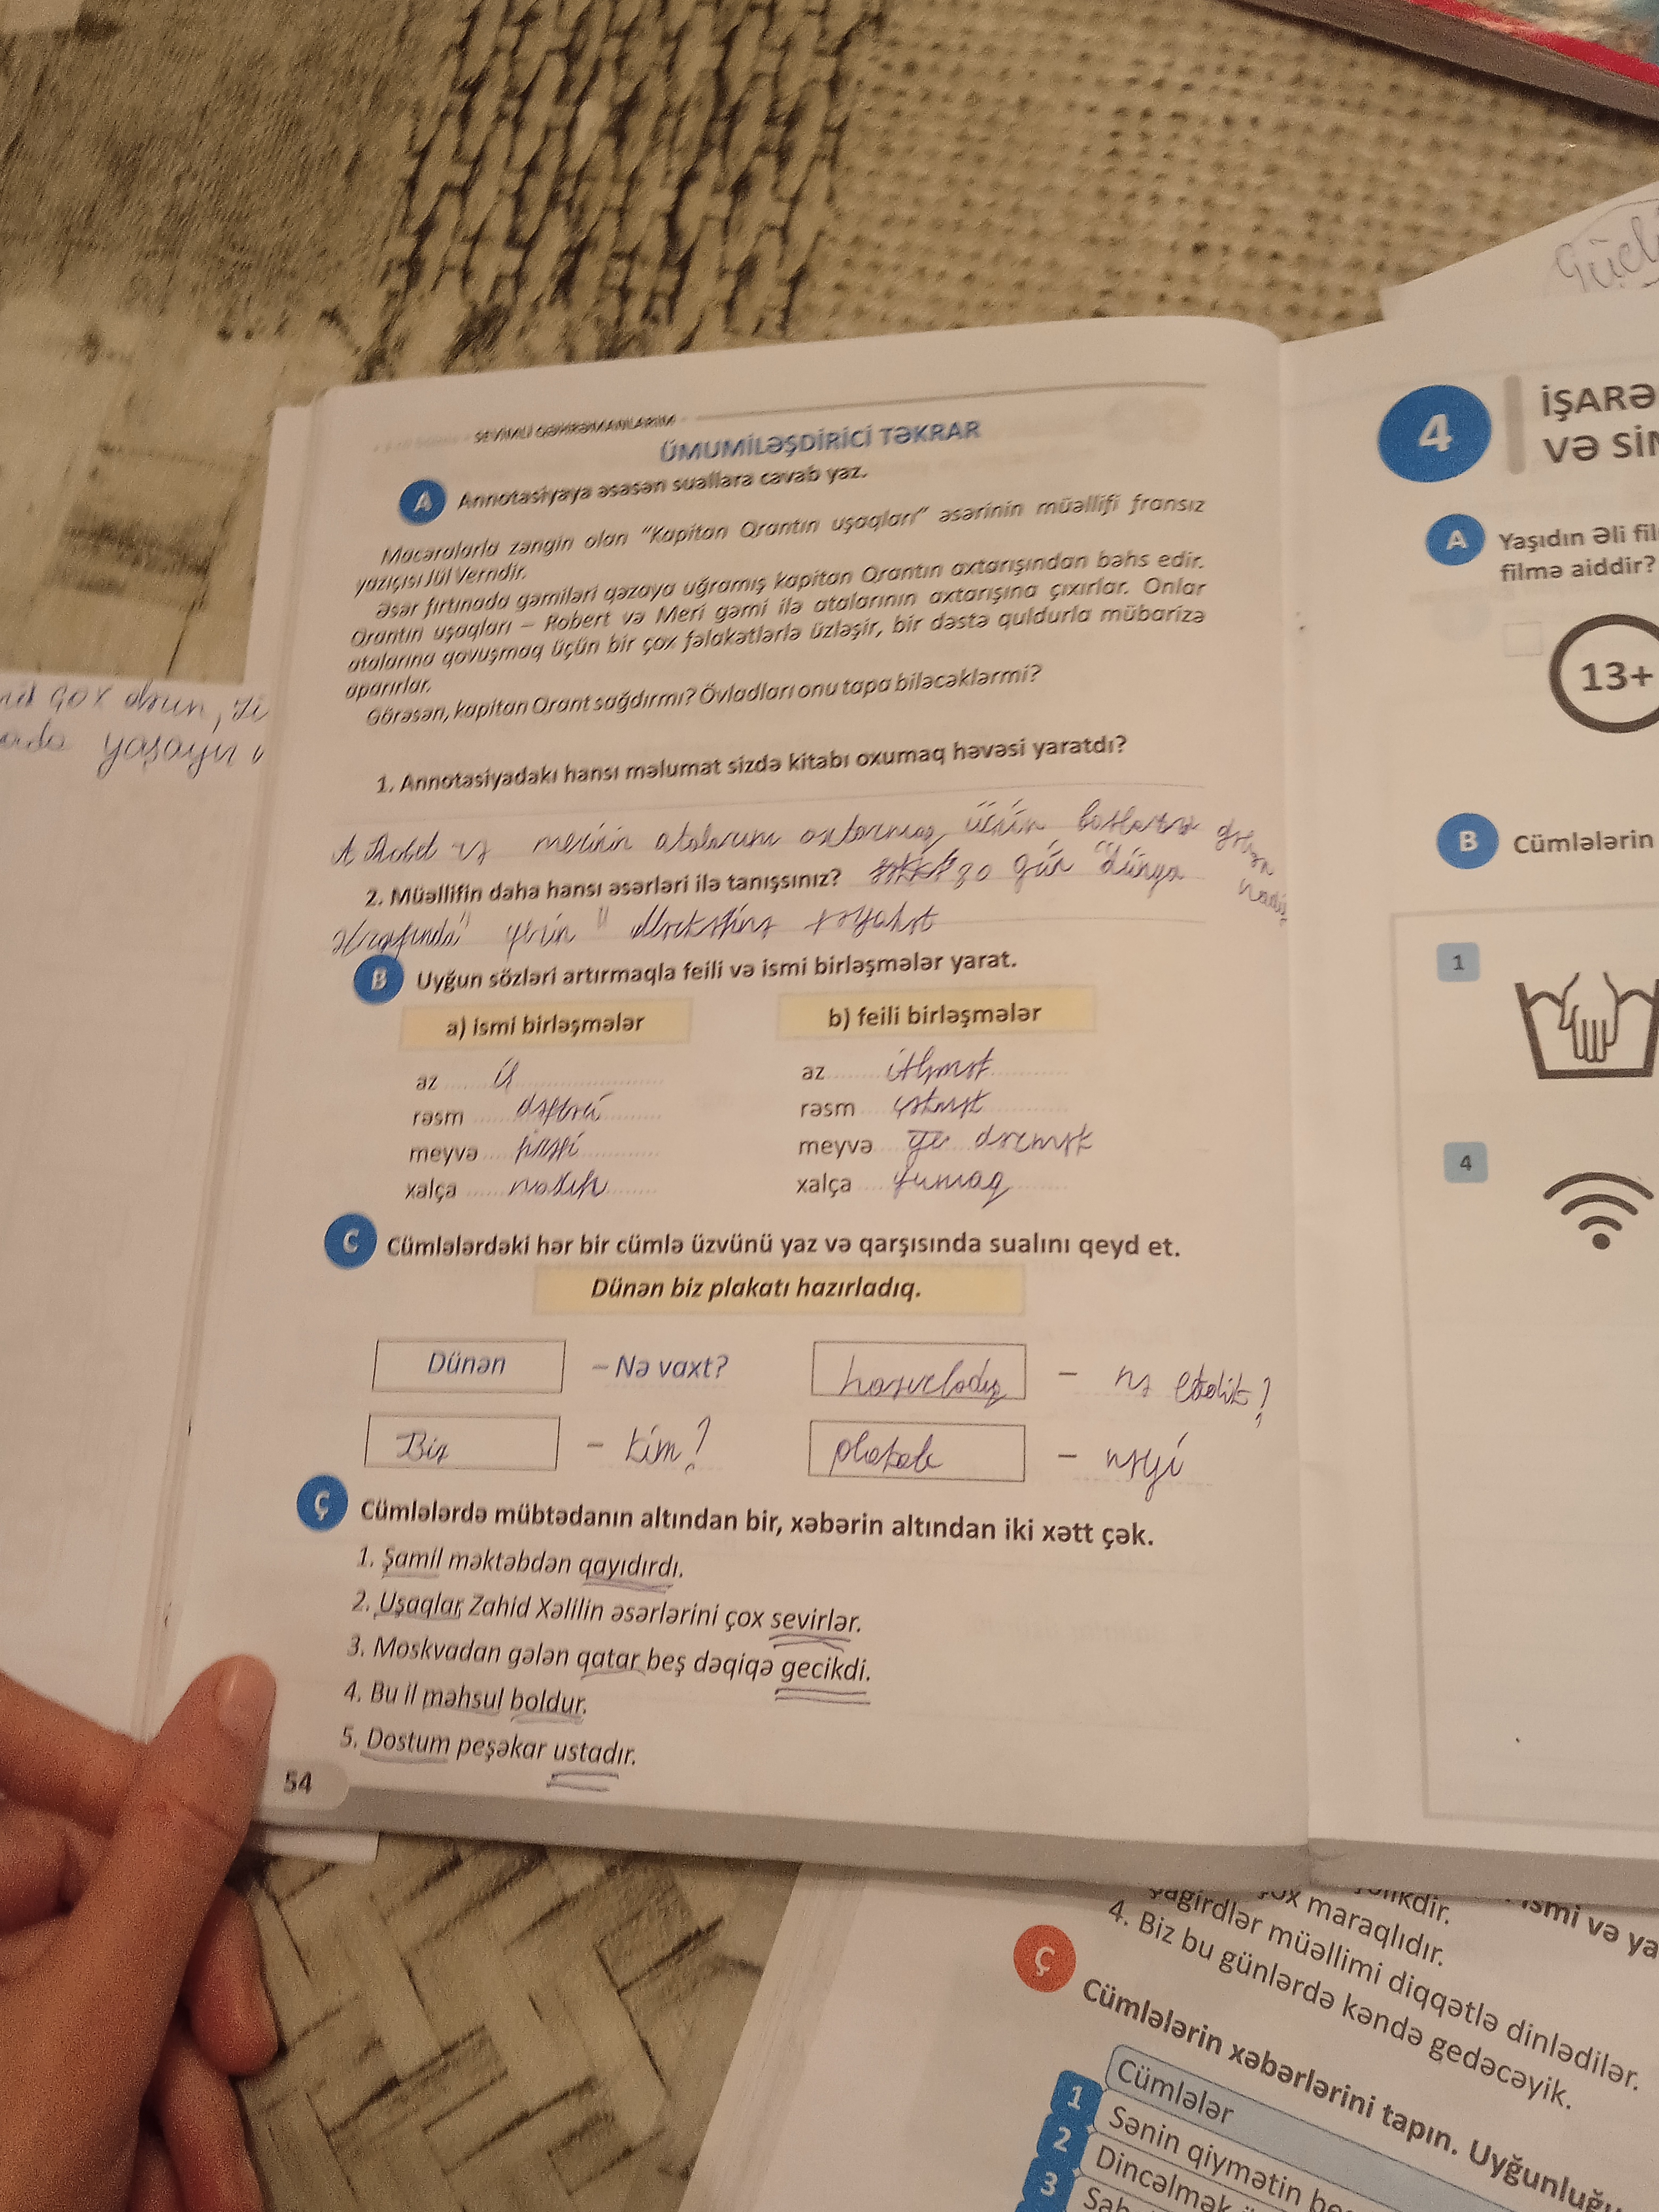 Güclü
SEVİMLİ QƏHRƏMANLARIM
ÜMUMİLƏŞDİRİCİ TƏKRAR
A Annotasiyaya əsasən suallara cavab yaz.
Macəralarla zəngin olan "Kapitan Qrantın uşaqları" əsərinin müəllifi fransız
yazıçısı Jül Verndir.
Əsər fırtınada gəmiləri qəzaya uğramış kapitan Qrantın axtarışından bəhs edir.
Qrantın uşaqları – Robert və Meri gəmi ilə atalarının axtarışına çıxırlar. Onlar
atalarına qovuşmaq üçün bir çox fəlakətlərlə üzləşir, bir dəstə quldurla mübarizə
aparırlar.
Görəsən, kapitan Qrant sağdırmı? Övladları onu tapa biləcəklərmi?
1. Annotasiyadakı hansı məlumat sizdə kitabı oxumaq həvəsi yaratdı?
merinin atalarını axtarmaq üçün başlarına gələn
2. Müəllifin daha hansı əsərləri ilə tanışsınız? 80 gün "dünya
ətrafında" yerin " mərkəzinə səyahət
B Uyğun sözləri artırmaqla feili və ismi birləşmələr yarat.
a) ismi birləşmələr
b) feili birləşmələr
az
az itləmət
rəsm dəftəri
rəsm çəkmək
meyvə
meyvə dərmək
xalça
xalça yumaq
C Cümlələrdəki hər bir cümlə üzvünü yaz və qarşısında sualını qeyd et.
Dünən biz plakatı hazırladıq.
Dünən – Nə vaxt?
hazırladıq – nə etdik?
Biz – kim?
plakatı – nəyi
Ç Cümlələrdə mübtədanın altından bir, xəbərin altından iki xətt çək.
1. Şamil məktəbdən qayıdırdı.
2. Uşaqlar Zahid Xəlilin əsərlərini çox sevirlər.
3. Moskvadan gələn qatar beş dəqiqə gecikdi.
4. Bu il məhsul boldur.
5. Dostum peşəkar ustadır.
54
çox olsun,
yaşayır
4 İŞARƏ
VƏ SİM
A Yaşıdın Əli fil
filmə aiddir?
13+
B Cümlələrin
1
4
ismi və ya
çox maraqlıdır.
Şagirdlər müəllimi diqqətlə dinlədilər.
4. Biz bu günlərdə kəndə gedəcəyik.
Ç Cümlələrin xəbərlərini tapın. Uyğunluğu
Cümlələr
1 Sənin qiymətin be
2 Dincəlmək
3 Səh